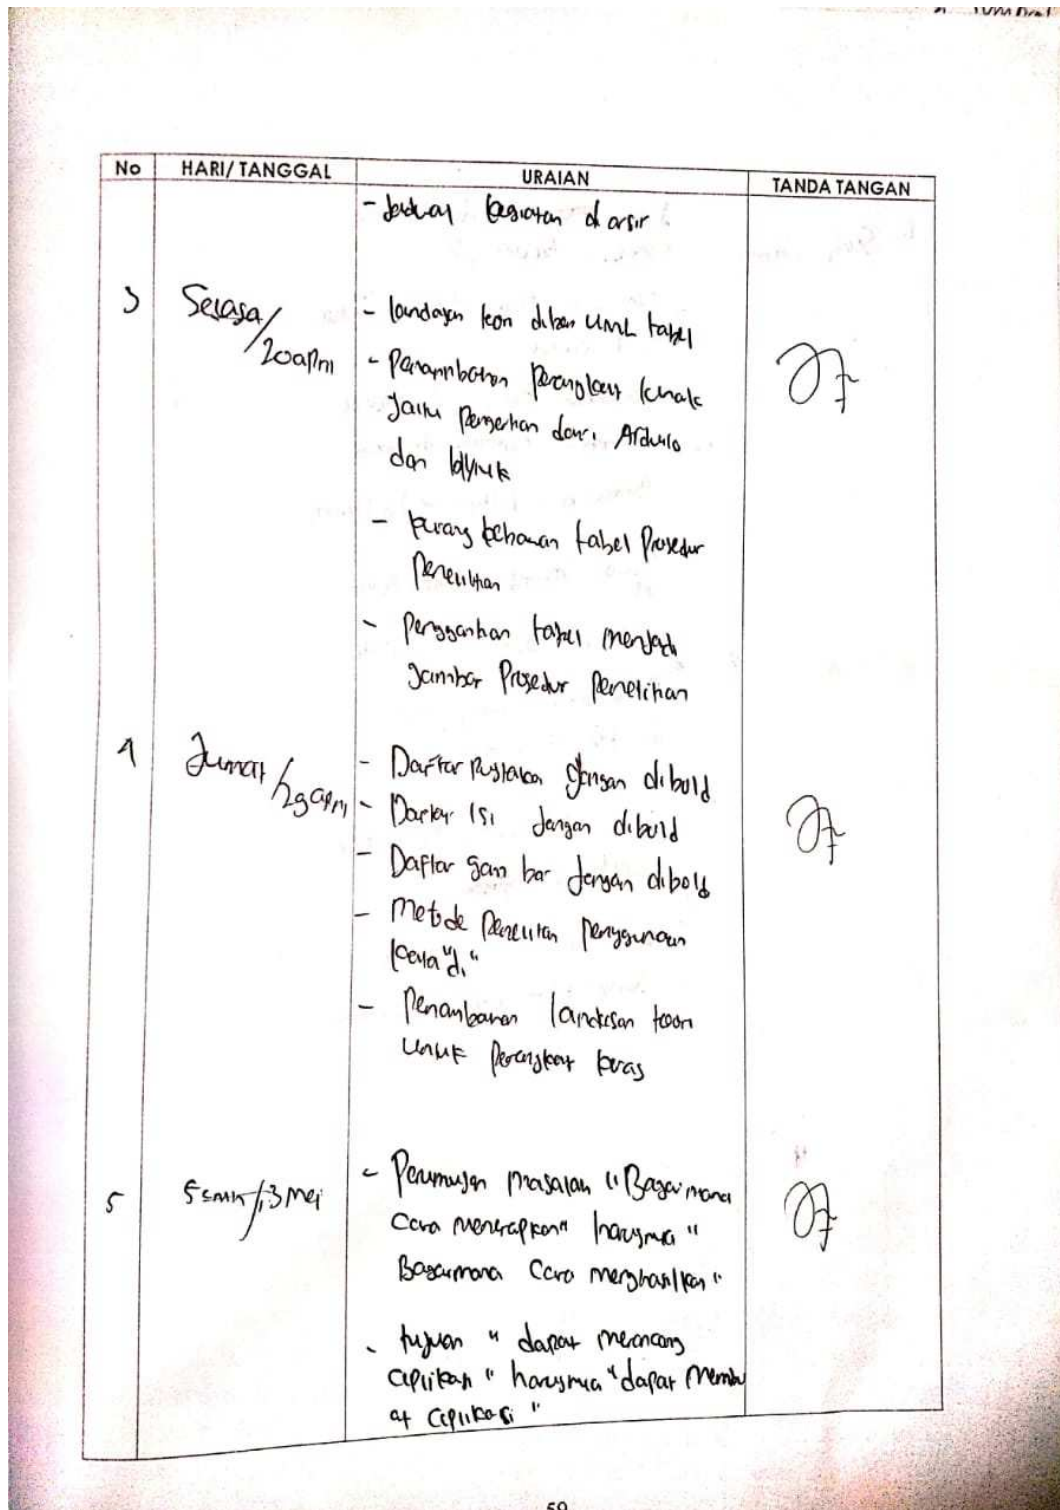 No HARI/ TANGGAL URAIAN TANDA TANGAN
- Jadwal kegiatan di arsir
3 Selasa/ 20 april
- landasan teori diberi UML tabel
- Penambahan perangkat lunak
yaitu pengertian dari Arduino
dan blynk
- kurang keterangan tabel Prosedur
Penelitian
- penggantian tabel menjadi
gambar Prosedur Penelitian
4 Jumat /29 april
- Daftar Pustaka jangan dibold
- Daftar Isi Jangan dibold
- Daftar gam bar jangan dibold
- Metode Penelitian penggunaan
kata "di"
- Penambahan landasan teori
untuk Perangkat keras
5 Senin /13 Mei
- Perumusan masalah "Bagaimana
cara menerapkan" harusnya "
Bagaimana cara menghasilkan"
- tujuan " dapat merancang
aplikasi " harusnya "dapat membu
at aplikasi "
59